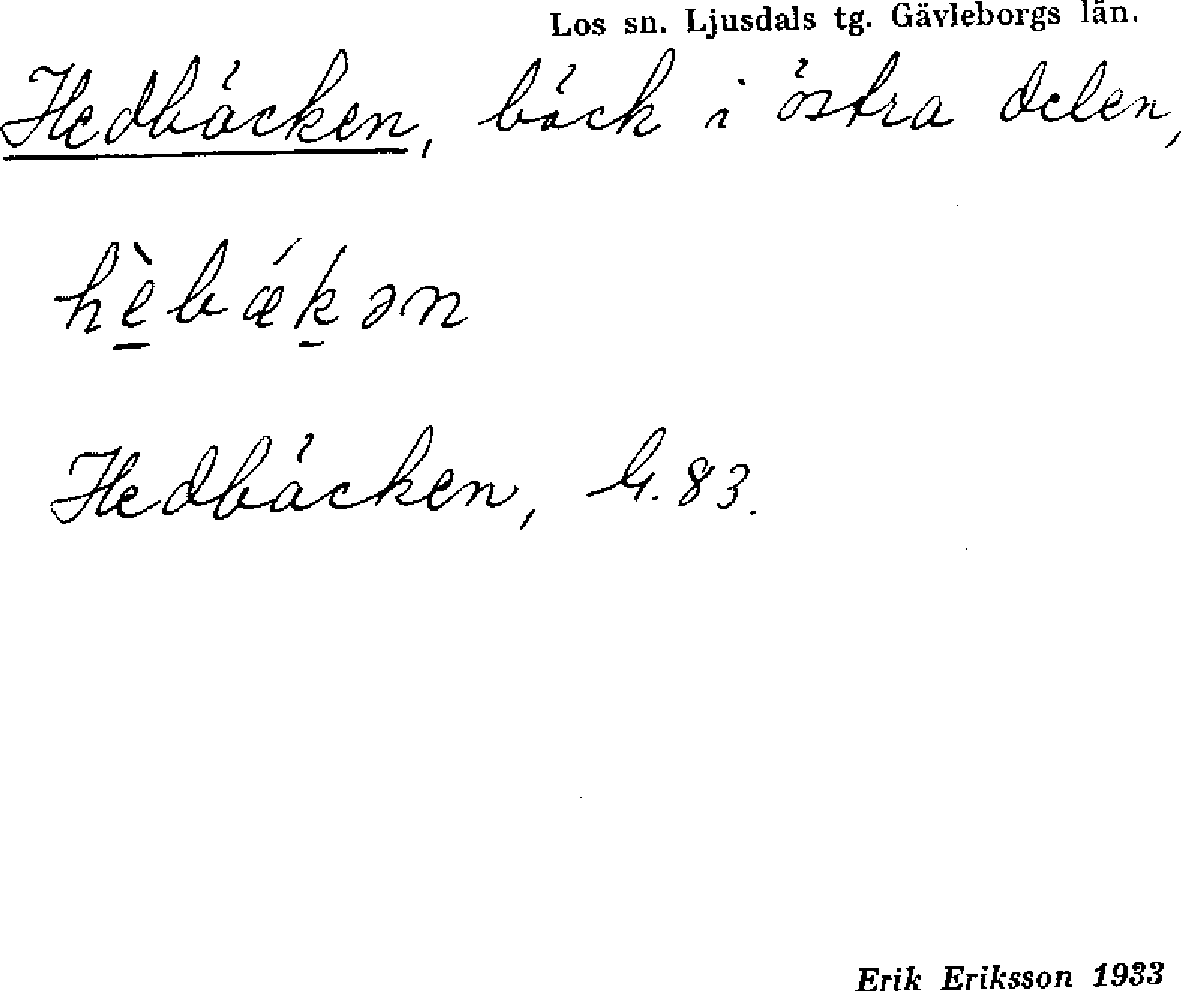 Los sn. Ljusdals tg. Gävleborgs län.
Hedbäcken, bäck i östra delen,
hè̱bǽḵən
Hedbäcken, G. 83.
Erik Eriksson 1933